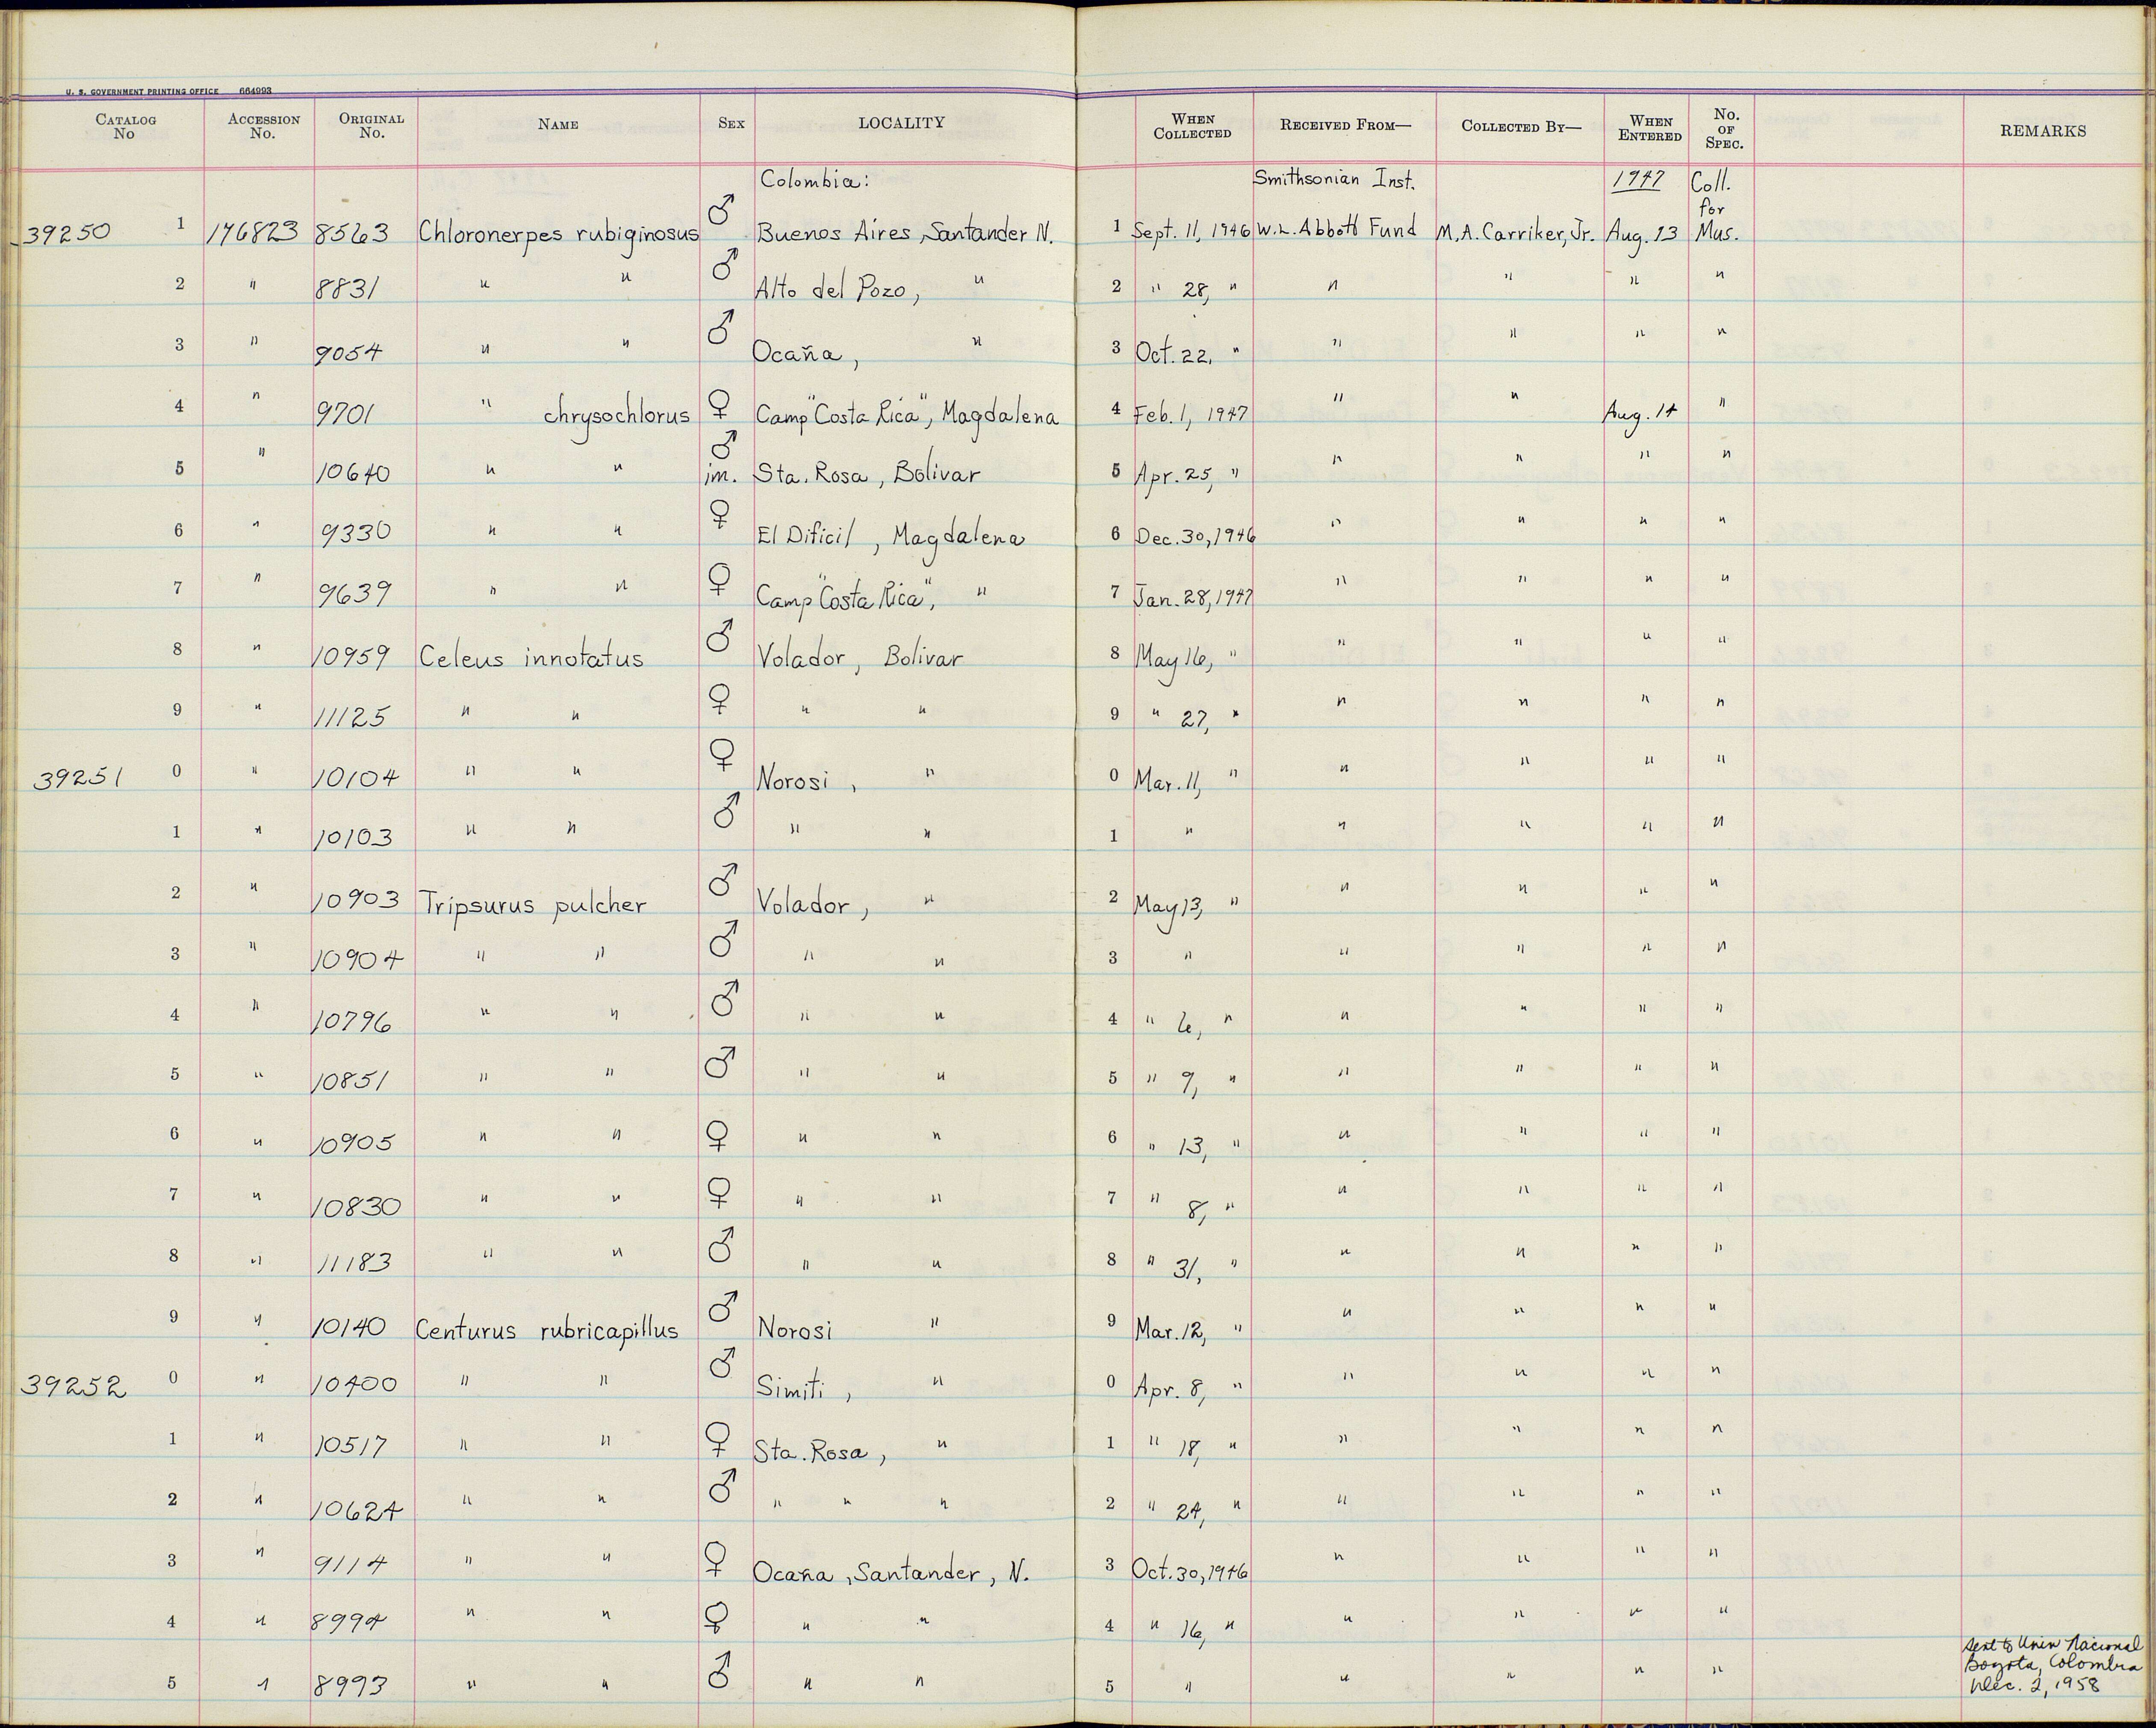 U. S. GOVERNMENT PRINTING OFFICE 664993
CATALOG No ACCESSION No. ORIGINAL No. NAME SEX LOCALITY WHEN COLLECTED RECEIVED FROM— COLLECTED BY— WHEN ENTERED No. OF SPEC. REMARKS
Colombia: Smithsonian Inst. 1947 Coll. for
39250 1 176823 8563 Chloronerpes rubiginosus ♂ Buenos Aires, Santander N. 1 Sept. 11, 1946 W.L. Abbott Fund M.A. Carriker, Jr. Aug. 13 Mus.
2 " 8831 " " ♂ Alto del Pozo, " 2 " 28, " " " " "
3 " 9054 " " ♂ Ocaña, " 3 Oct. 22, " " " " "
4 " 9701 " chrysochlorus ♀ Camp "Costa Rica", Magdalena 4 Feb. 1, 1947 " " Aug. 14 "
5 " 10640 " " ♂ im. Sta. Rosa, Bolivar 5 Apr. 25, " " " " "
6 " 9330 " " ♀ El Dificil, Magdalena 6 Dec. 30, 1946 " " " "
7 " 9639 " " ♀ Camp "Costa Rica", " 7 Jan. 28, 1947 " " " "
8 " 10959 Celeus innotatus ♂ Volador, Bolivar 8 May 16, " " " " "
9 " 11125 " " ♀ " " 9 " 27, " " " " "
39251 0 " 10104 " " ♀ Norosi, " 0 Mar. 11, " " " " "
1 " 10103 " " ♂ " " 1 " " " " "
2 " 10903 Tripsurus pulcher ♂ Volador, " 2 May 13, " " " " "
3 " 10904 " " ♂ " " 3 " " " " "
4 " 10796 " " ♂ " " 4 " 6, " " " " "
5 " 10851 " " ♂ " " 5 " 9, " " " " "
6 " 10905 " " ♀ " " 6 " 13, " " " " "
7 " 10830 " " ♀ " " 7 " 8, " " " " "
8 " 11183 " " ♂ " " 8 " 31, " " " " "
9 " 10140 Centurus rubricapillus ♂ Norosi " 9 Mar. 12, " " " " "
39252 0 " 10400 " " ♂ Simiti, " 0 Apr. 8, " " " " "
1 " 10517 " " ♀ Sta. Rosa, " 1 " 18, " " " " "
2 " 10624 " " ♂ " " " 2 " 24, " " " " "
3 " 9114 " " ♀ Ocaña, Santander, N. 3 Oct. 30, 1946 " " " "
4 " 8994 " " ♀ " " 4 " 16, " " " " "
5 " 8993 " " ♂ " " 5 " " " " "
Sent to Univ Nacional
Bogota, Colombia
Dec. 2, 1958